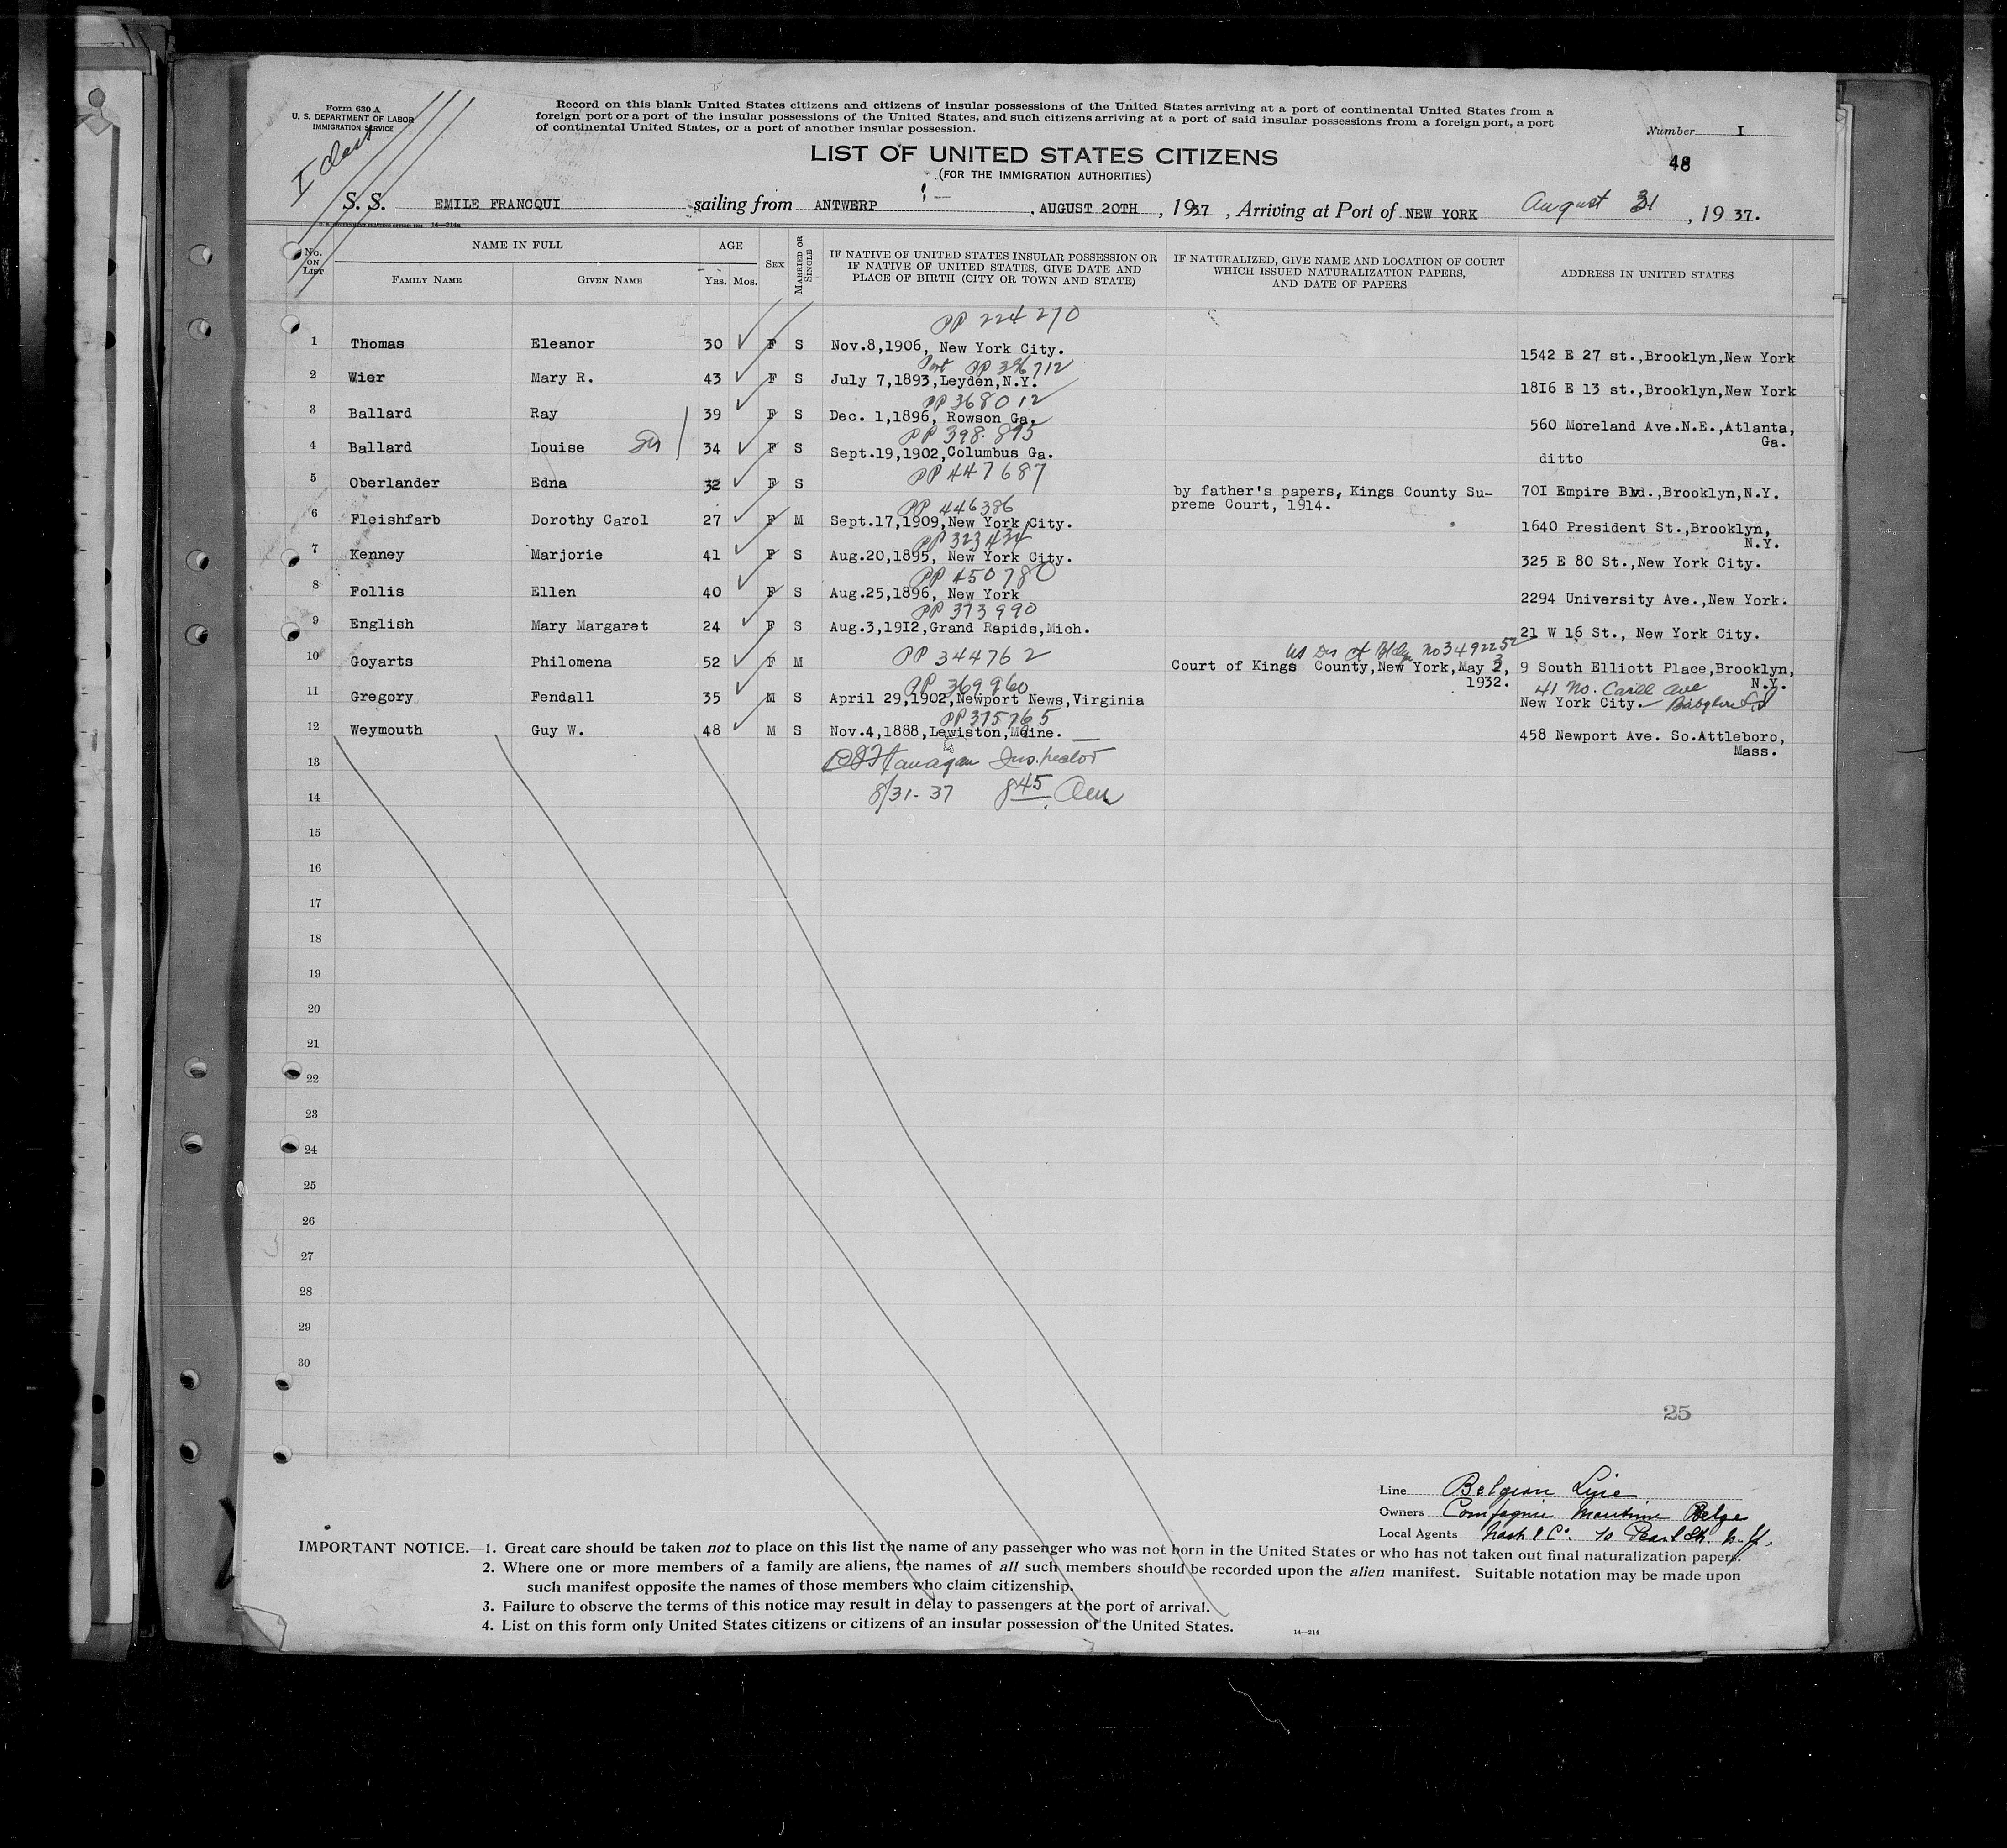 Form 630 A
U. S. DEPARTMENT OF LABOR
IMMIGRATION SERVICE
I class
Record on this blank United States citizens and citizens of insular possessions of the United States arriving at a port of continental United States from a
foreign port or a port of the insular possessions of the United States, and such citizens arriving at a port of said insular possessions from a foreign port, a port
of continental United States, or a port of another insular possession.
Number I
48
LIST OF UNITED STATES CITIZENS
(FOR THE IMMIGRATION AUTHORITIES)
S. S. EMILE FRANCQUI sailing from ANTWERP , AUGUST 20TH , 1937 , Arriving at Port of NEW YORK August 31 , 1937.
No. on List NAME IN FULL AGE Sex Married or Single IF NATIVE OF UNITED STATES INSULAR POSSESSION OR IF NATIVE OF UNITED STATES, GIVE DATE AND PLACE OF BIRTH (CITY OR TOWN AND STATE) IF NATURALIZED, GIVE NAME AND LOCATION OF COURT WHICH ISSUED NATURALIZATION PAPERS, AND DATE OF PAPERS ADDRESS IN UNITED STATES
Family Name Given Name Yrs. Mos.
PP 224270
1 Thomas Eleanor 30 F S Nov.8,1906, New York City. 1542 E 27 st.,Brooklyn,New York
2 Wier Mary R. 43 F S July 7,1893,Leyden,N.Y. 1816 E 13 st.,Brooklyn,New York
PP 368012
3 Ballard Ray 39 F S Dec. 1,1896, Rowson Ga. 560 Moreland Ave.N.E.,Atlanta,
Ga.
PP 398.895
4 Ballard Louise 34 F S Sept.19,1902,Columbus Ga. ditto
PP 447687
5 Oberlander Edna 32 F S by father's papers, Kings County Su-
preme Court, 1914. 701 Empire Blvd.,Brooklyn,N.Y.
PP 446386
6 Fleishfarb Dorothy Carol 27 F M Sept.17,1909,New York City. 1640 President St.,Brooklyn,
N.Y.
PP 323434
7 Kenney Marjorie 41 F S Aug.20,1895, New York City. 325 E 80 St.,New York City.
PP 450780
8 Follis Ellen 40 F S Aug.25,1896, New York 2294 University Ave.,New York.
PP 373990
9 English Mary Margaret 24 F S Aug.3,1912,Grand Rapids,Mich. 21 W 16 St., New York City.
No 3492252
10 Goyarts Philomena 52 F M PP 344762 Court of Kings County,New York,May 3,
1932. 9 South Elliott Place,Brooklyn,
N.Y.
PP 369960
11 Gregory Fendall 35 M S April 29,1902,Newport News,Virginia New York City.
PP 375765
12 Weymouth Guy W. 48 M S Nov.4,1888,Lewiston,Maine. 458 Newport Ave. So.Attleboro,
Mass.
13 Flanagan Inspector
14 8/31-37 845 Am
15
16
17
18
19
20
21
22
23
24
25
26
27
28
29
30
25
Line Belgian Line
Owners Compagnie Maritime Belge
Local Agents 10 Pearl St. N.Y.
IMPORTANT NOTICE.—1. Great care should be taken not to place on this list the name of any passenger who was not born in the United States or who has not taken out final naturalization papers.
2. Where one or more members of a family are aliens, the names of all such members should be recorded upon the alien manifest. Suitable notation may be made upon
such manifest opposite the names of those members who claim citizenship.
3. Failure to observe the terms of this notice may result in delay to passengers at the port of arrival.
4. List on this form only United States citizens or citizens of an insular possession of the United States.
14—214